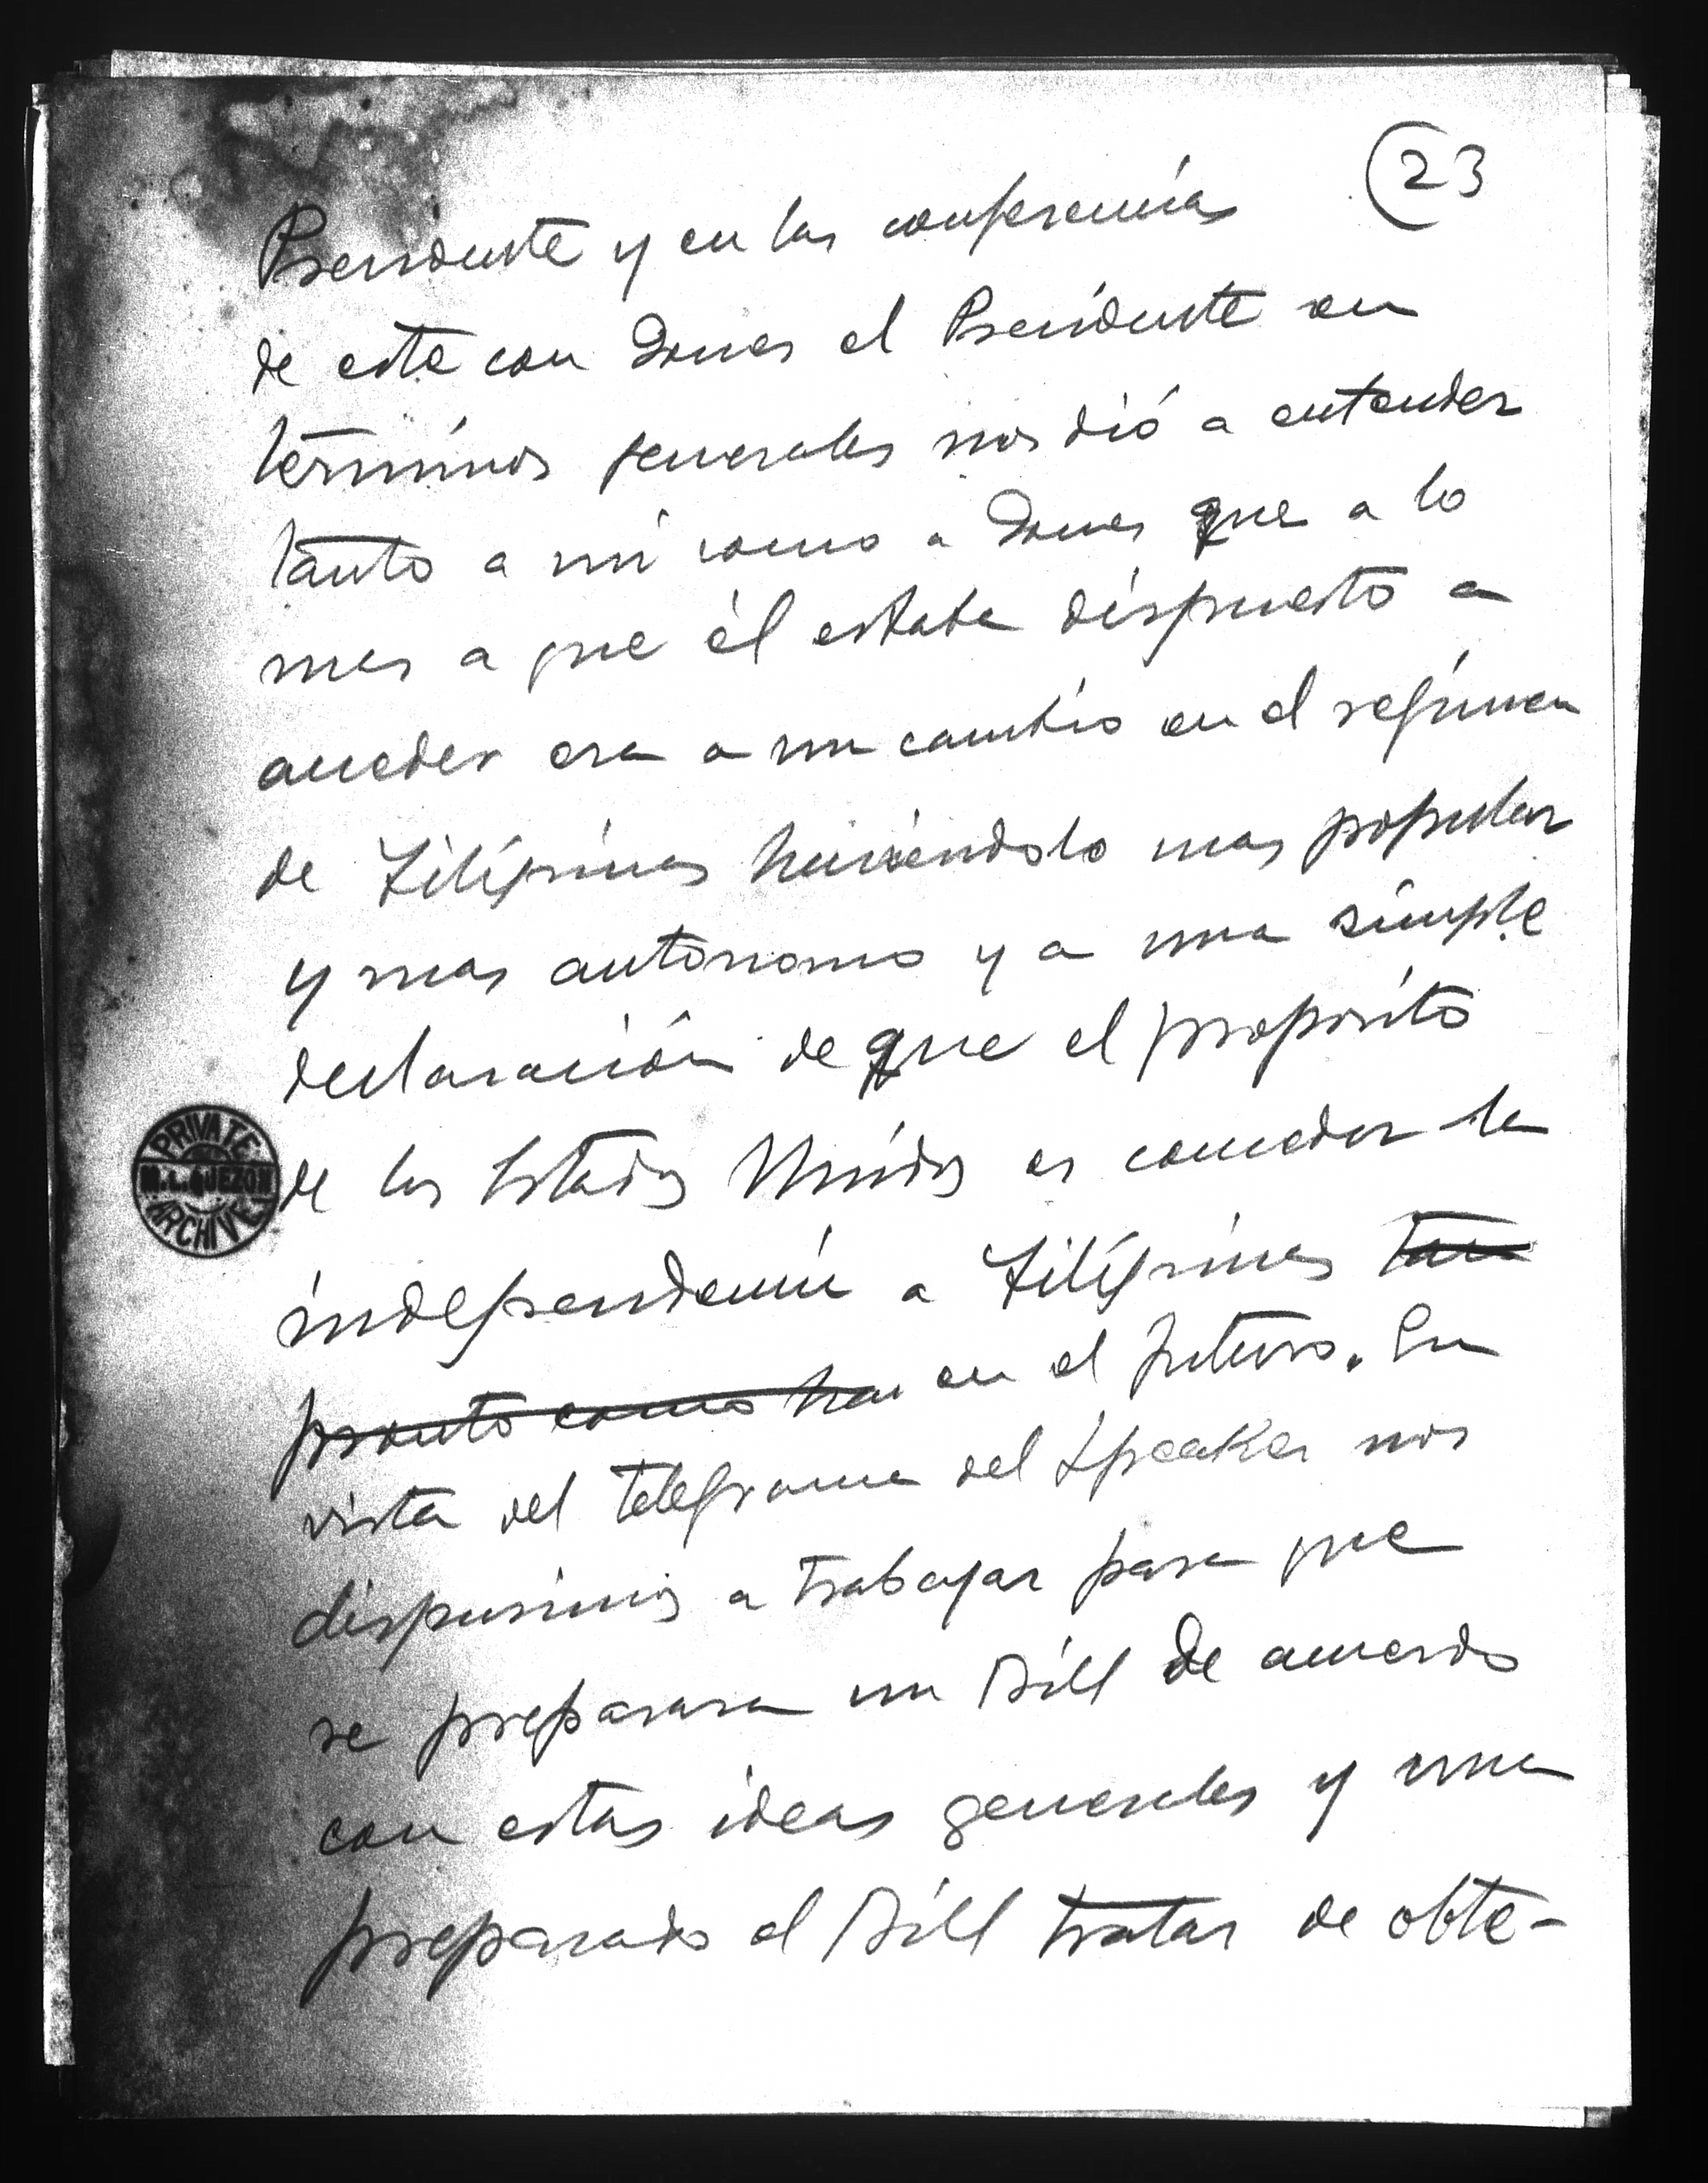 23
Presidente y en las conferencias
de este con Jones el Presidente en
términos generales nos dió a entender
tanto a mi como a Jones que a lo
mas a que él estaba dispuesto a
acceder era a un cambio en el regimen
de Filipinas haciéndolo mas popular
y mas autonomo y a una simple
declaración de que el proposito
de los Estados Unidos es conceder la
independencia a Filipinas tan
pronto como hai en el futuro. En
vista del telegrama del Speaker nos
dispusimos a trabajar para que
se preparara un Bill de acuerdo
con estas ideas generales y una
preparado el Bill tratar de obte-
PRIVATE
M.L. QUEZON
ARCHIVE